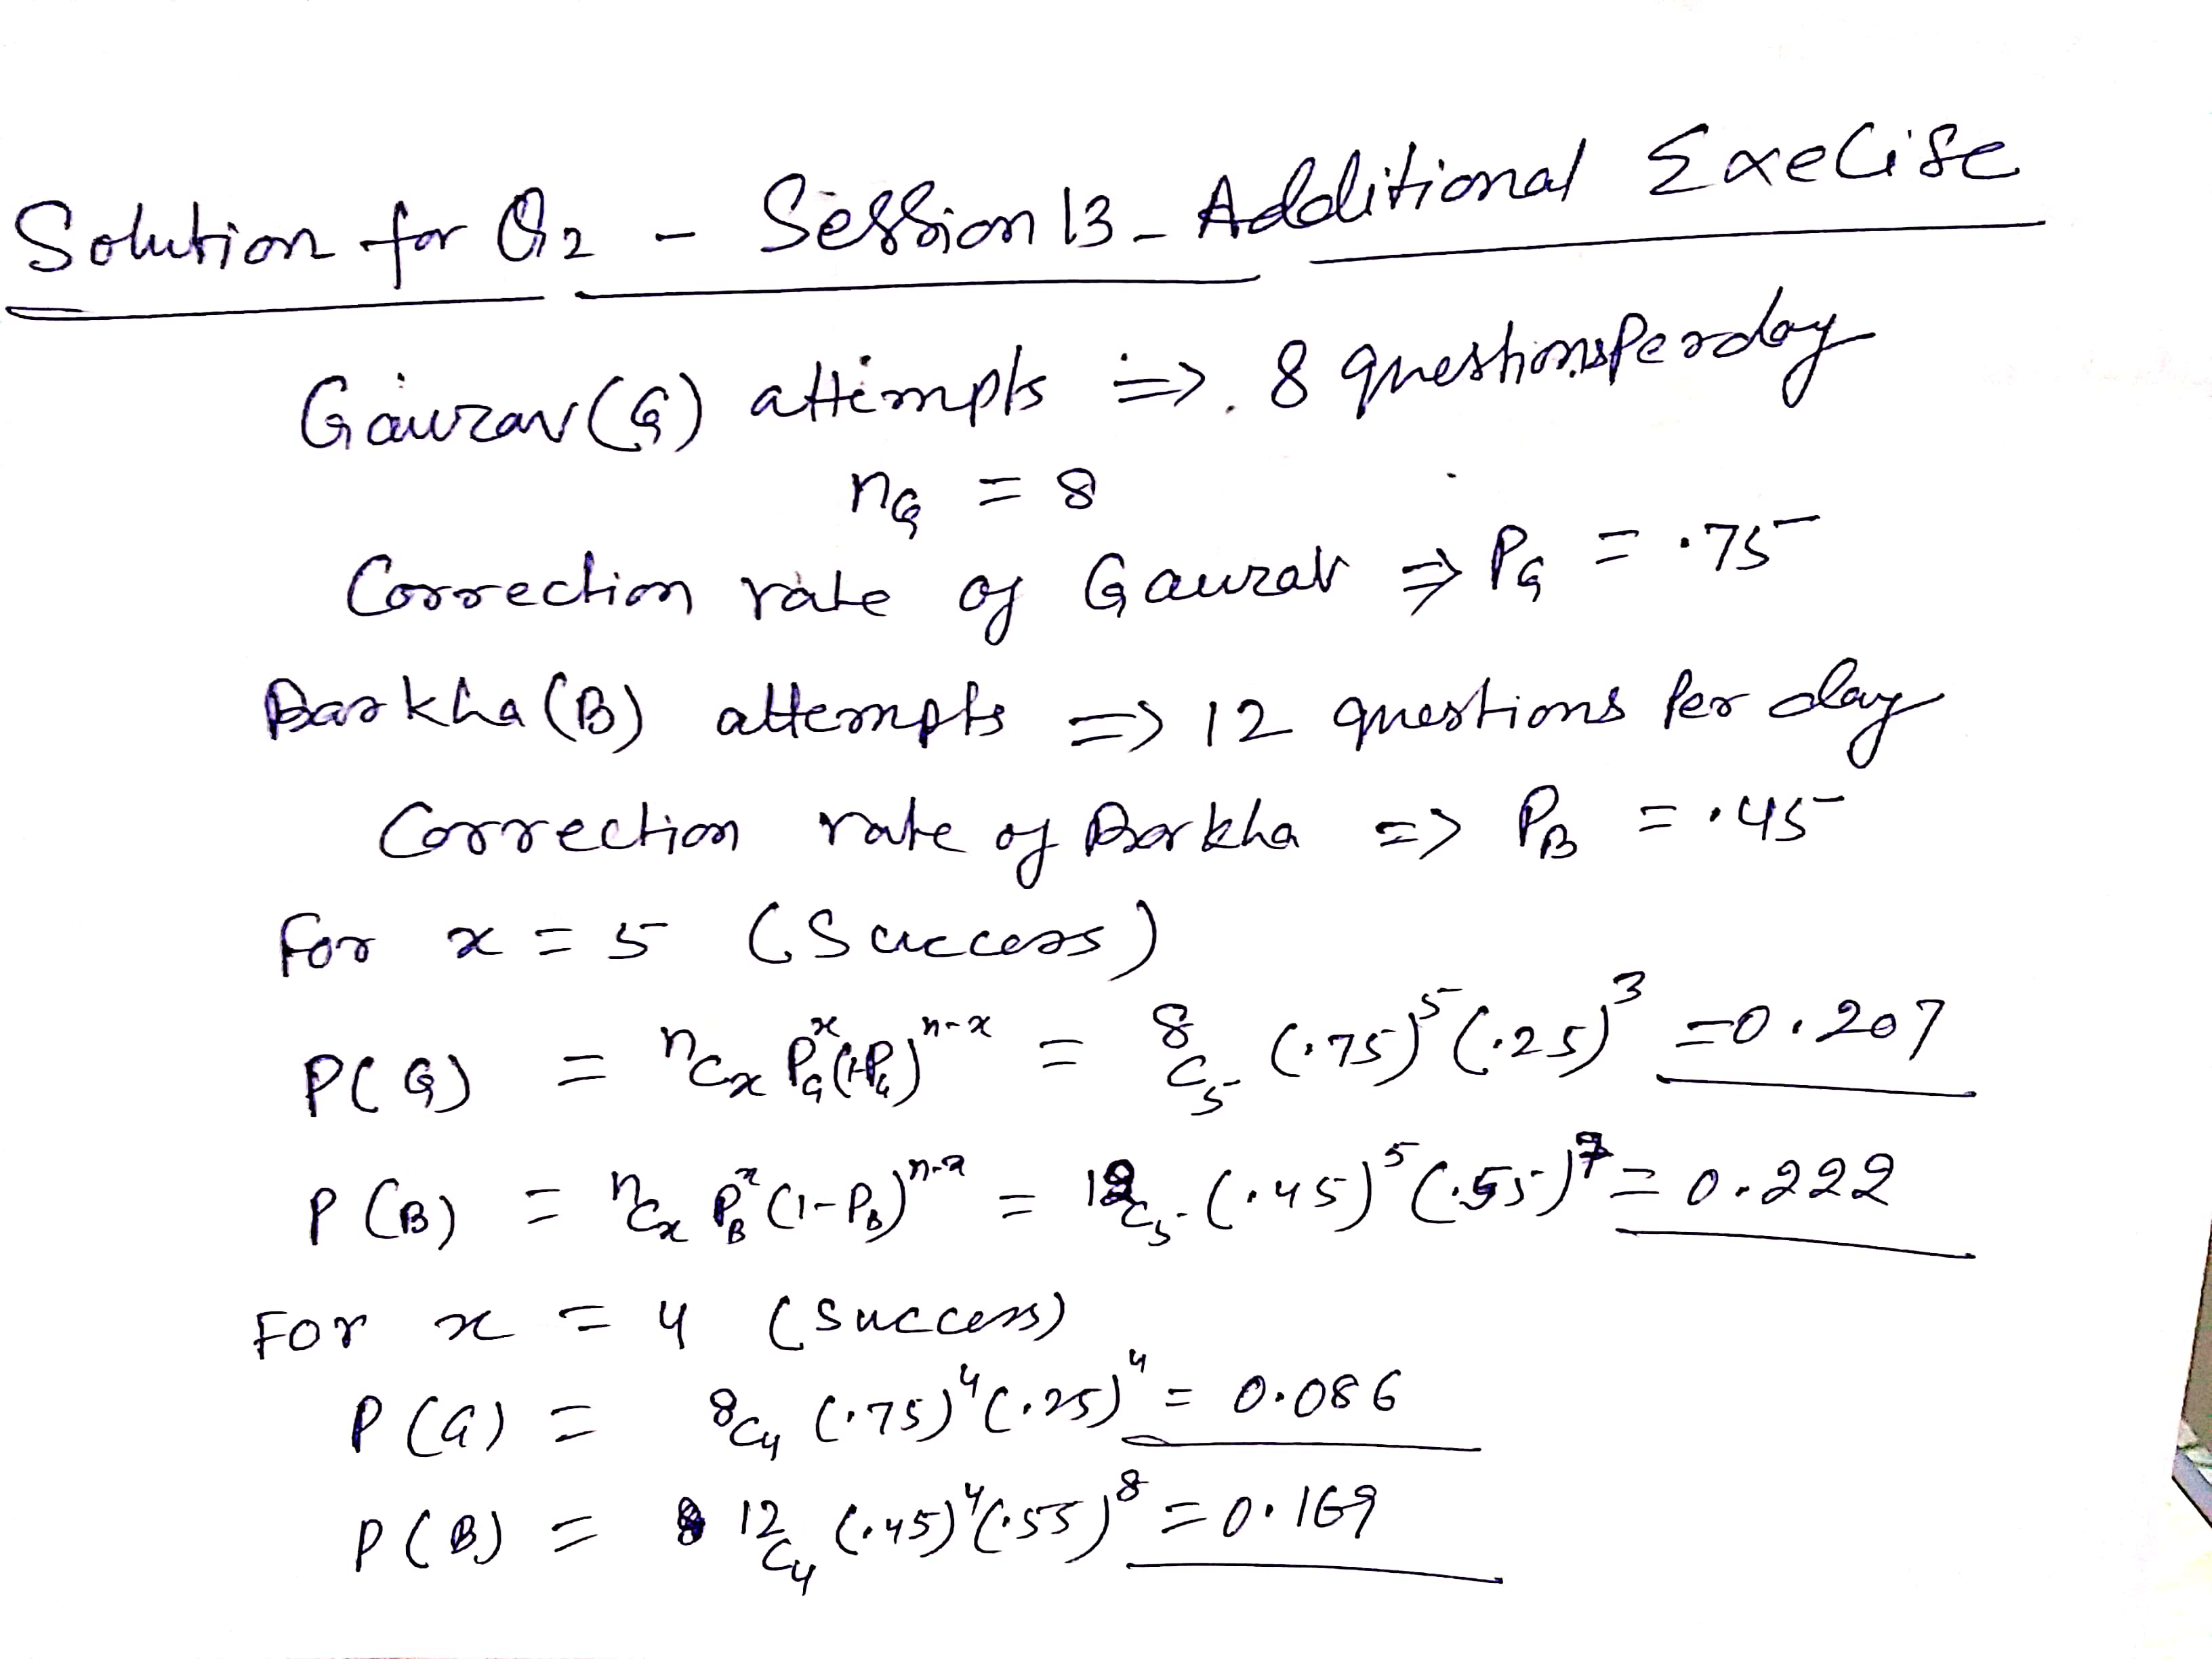 Solution for Q2 - Session 13 - Additional Execise
Gaurav (G) attempts => 8 questions per day
nG = 8
Correction rate of Gaurav => PG = .75
Barkha (B) attempts => 12 questions Per day
Correction rate of Barkha => PB = .45
For x = 5 (Success)
P(G) = nCx PG^x (1-PG)^n-x = 8C5 (.75)^5 (.25)^3 = 0.207
P(B) = nCx PB^x (1-PB)^n-x = 12C5 (.45)^5 (.55)^7 = 0.222
For x = 4 (Success)
P(G) = 8C4 (.75)^4 (.25)^4 = 0.086
P(B) = 12C4 (.45)^4 (.55)^8 = 0.169